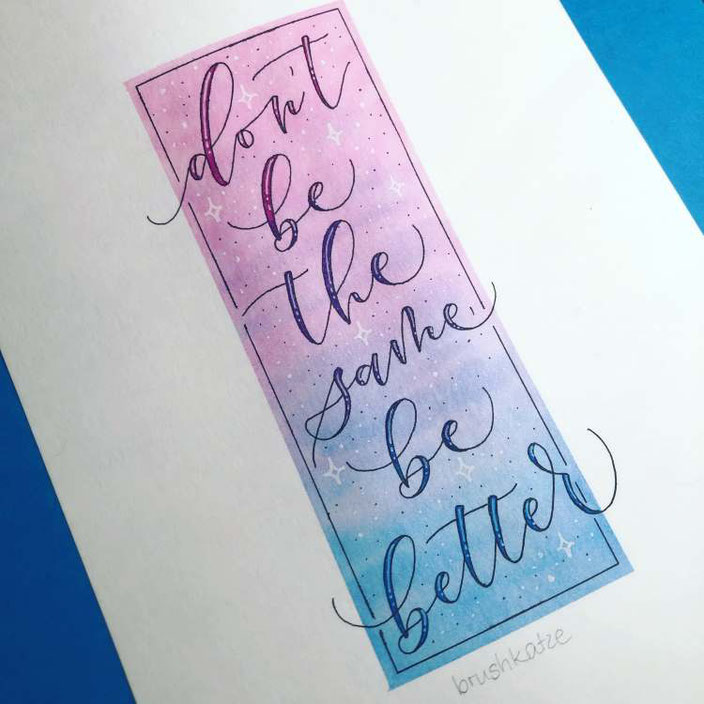 don't
be
the
same
be
better
brushkatze